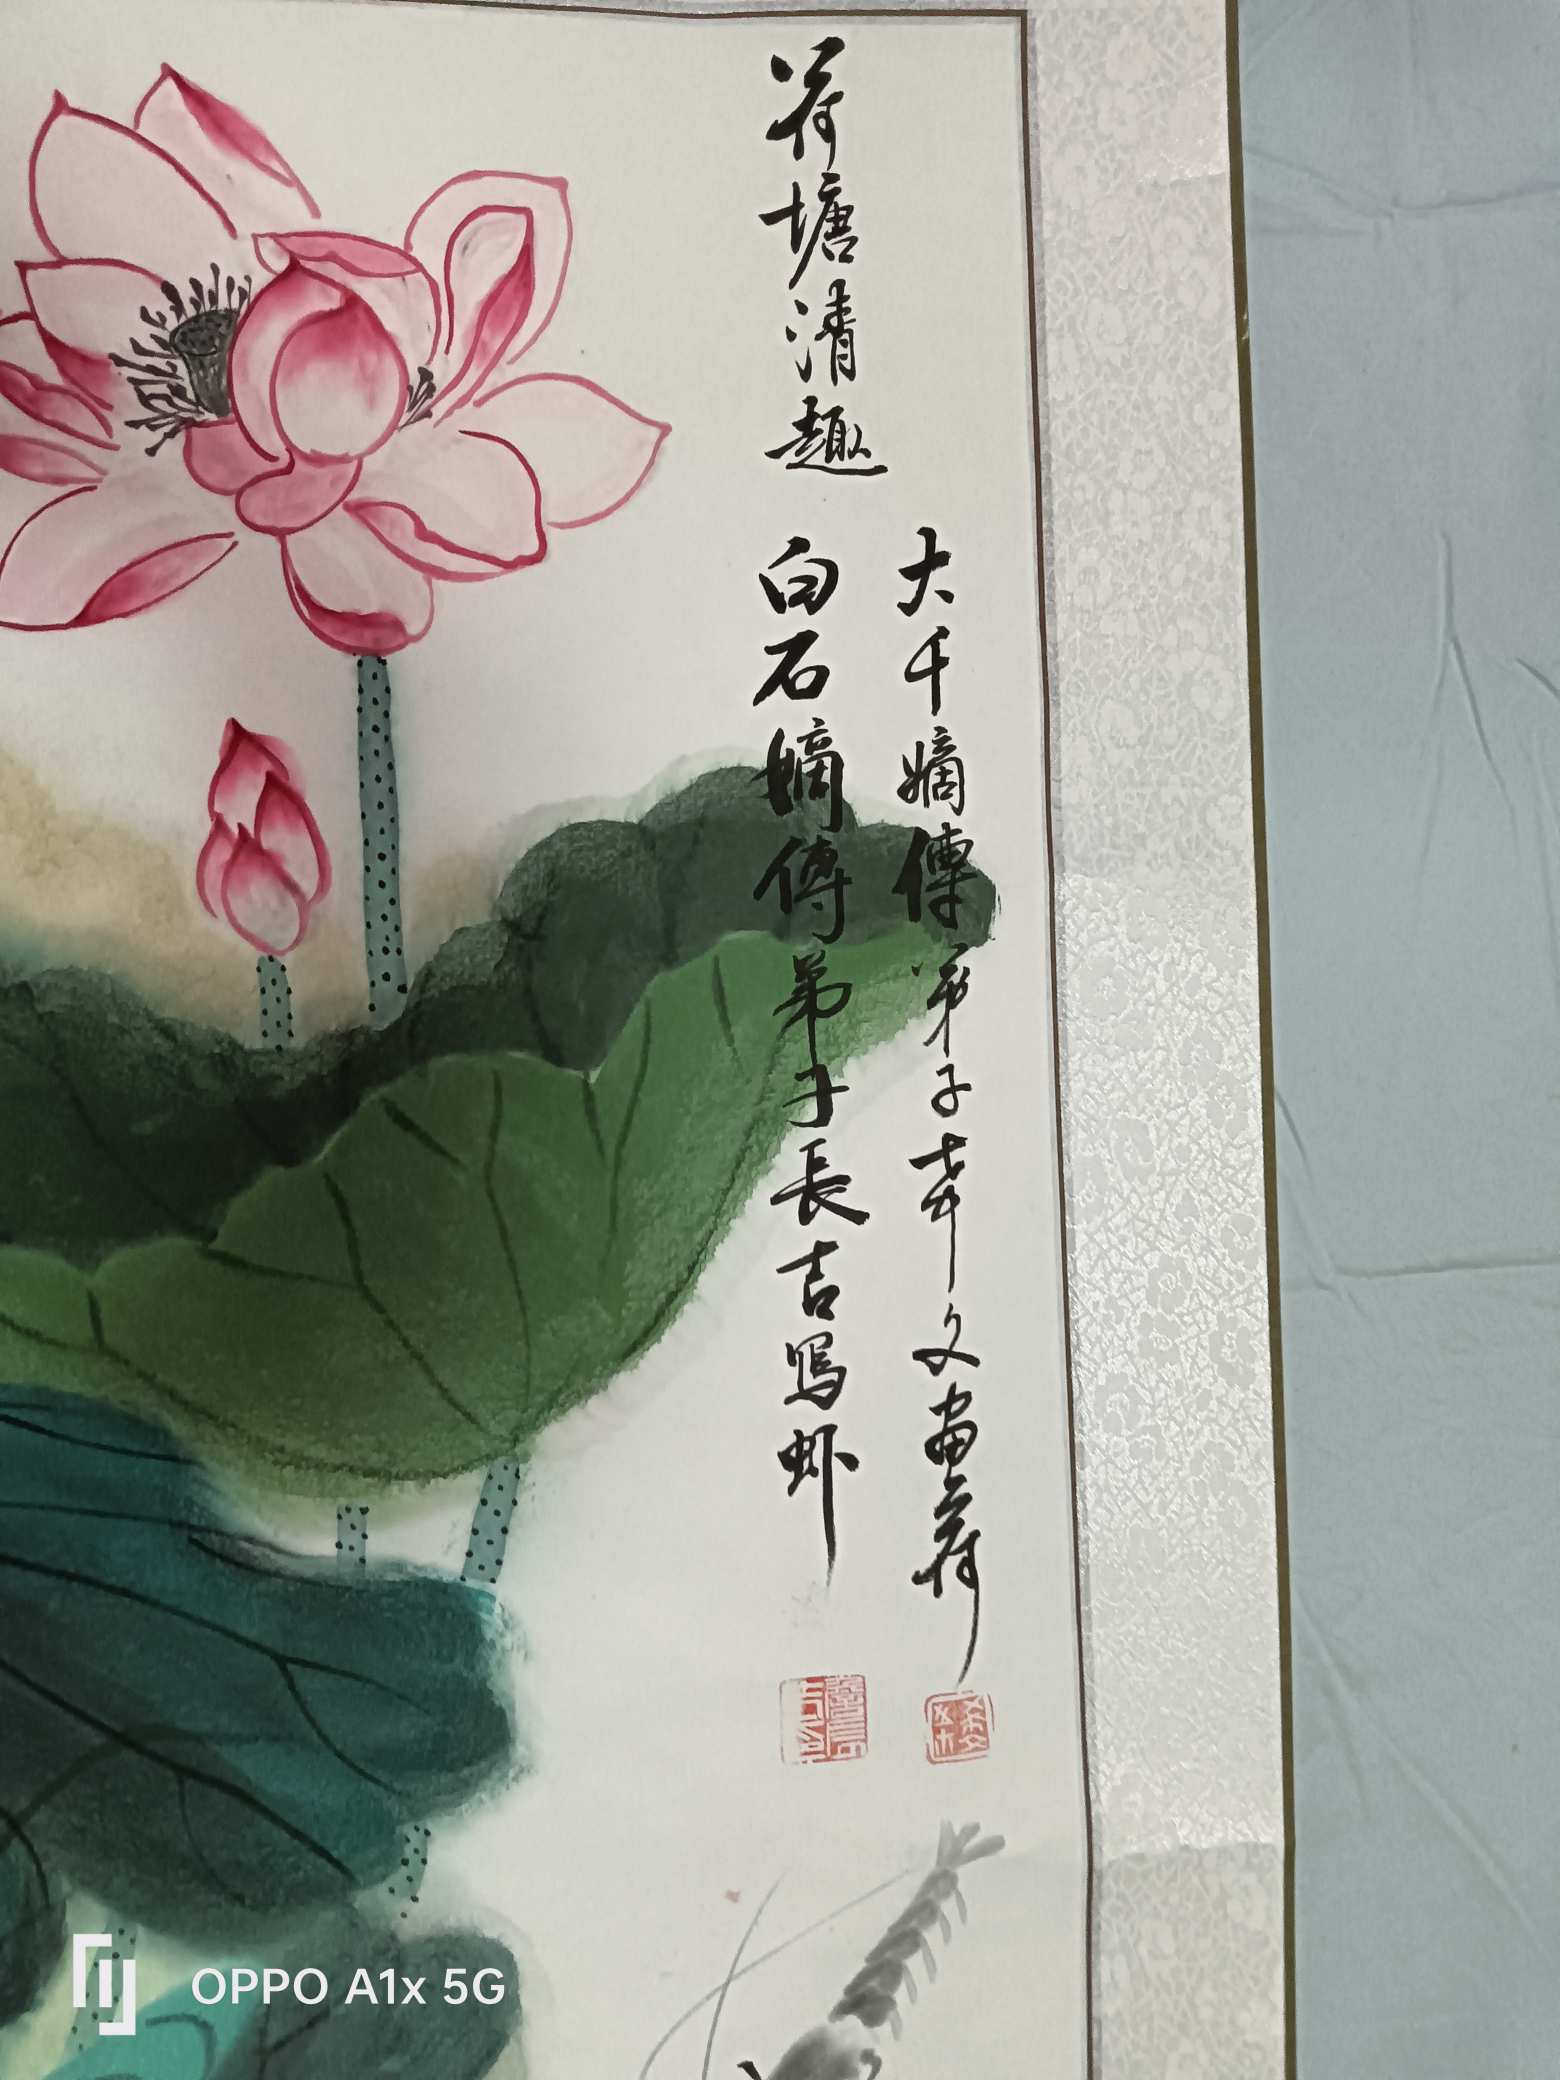 荷塘清趣
大千嫡傳弟子 文畫荷
白石嫡傳弟子長吉寫虾
OPPO A1x 5G